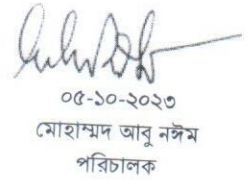 ০৫-১০-২০২৩
মোহাম্মদ আবু নঈম
পরিচালক